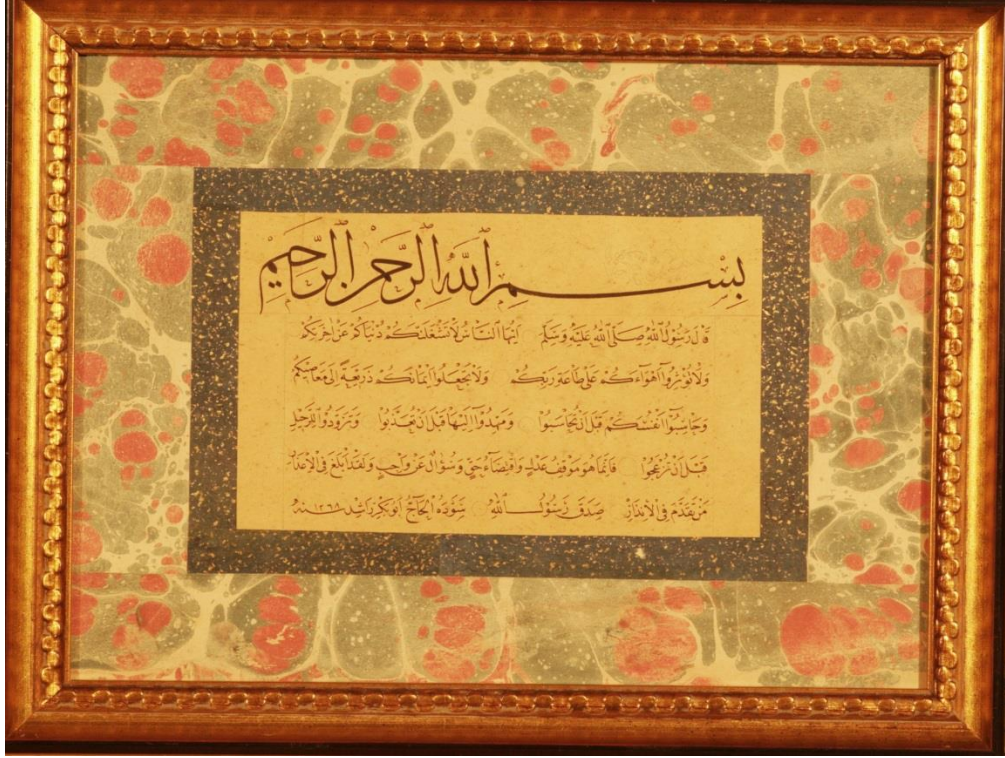 بسم الله الرحمن الرحيم
قال رسول الله صلى الله عليه وسلم ايها الناس لا تشغلنكم دنياكم عن اخرتكم
ولا تؤثروا اهواءكم على طاعة ربكم ولا تجعلوا ايمانكم ذريعة الى معاصيكم
وحاسبوا انفسكم قبل ان تحاسبوا ومهدوا اليها قبل ان تعذبوا وتزودوا للرحيل
قبل ان تزعجوا فانما هو موقف عدل واقتضاء حق وسؤال عن واجب ولقد ابلغ في الاعذار
من تقدم في الانذار صدق رسول الله سوده الحاج ابوبكر راشد سنه ١٢٦٨